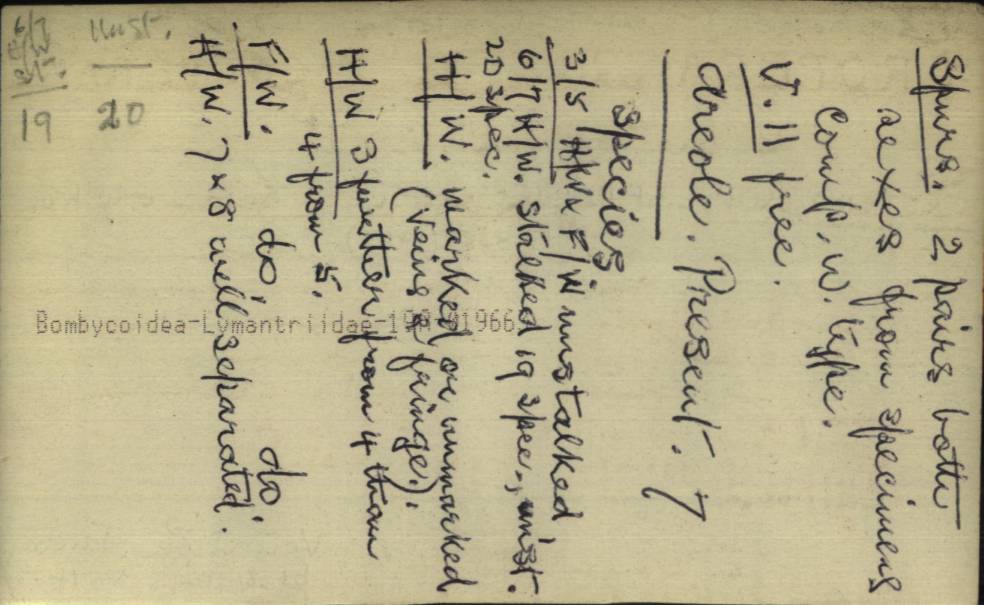 Spurs. 2 pairs both
sexes from specimens
comp. w. type.
V. 11 free.
Areole. Present. 7
Species
3/5 H/W & F/W unstalked
6/7 H/W. Stalked 19 spec., unst.
20 spec.
H/W. marked or unmarked
(Veins & fringe).
H/W 3 further from 4 than
4 from 5.
F/W. do. do.
H/W. 7 & 8 well separated.
Unst.
20
6/7
H/W
st.
19
Bombycoidea-Lymantriidae-
1966